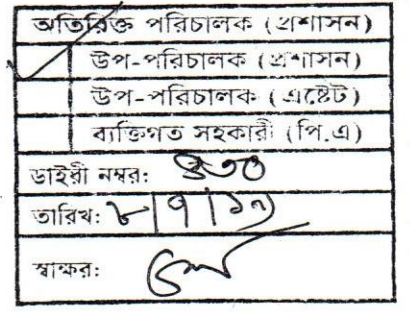 অতিরিক্ত পরিচালক (প্রশাসন)
উপ-পরিচালক (প্রশাসন)
উপ-পরিচালক (এষ্টেট)
ব্যক্তিগত সহকারী (পি.এ)
ডাইরী নম্বর:
তারিখ: ৮/৭/১৯
স্বাক্ষর: